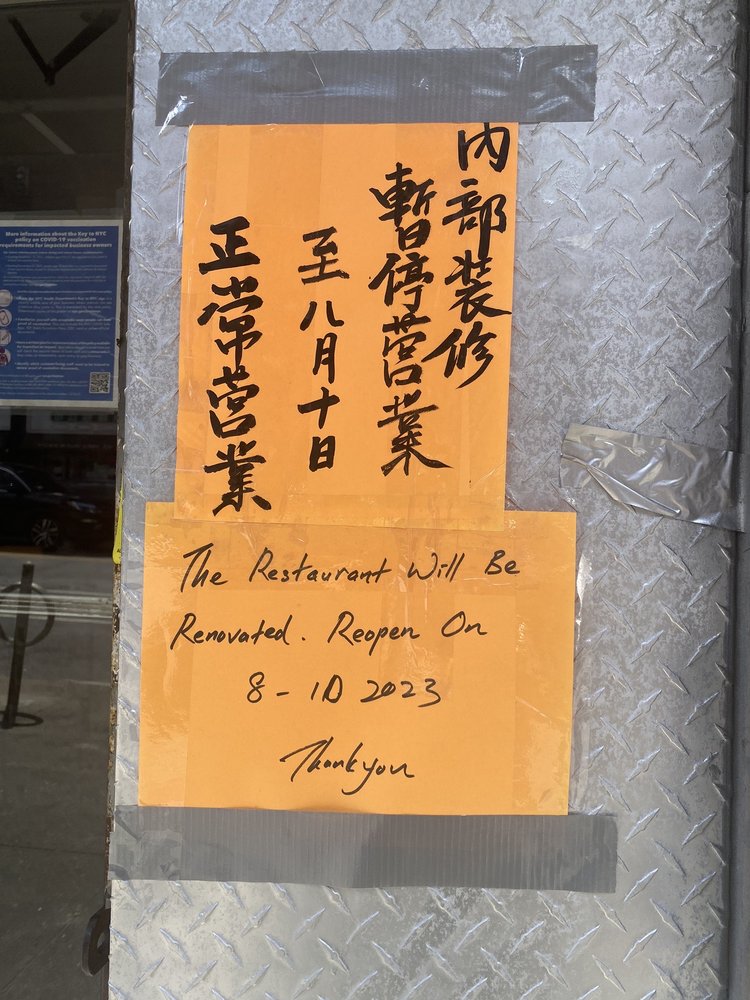 內部装修
暫停营業
至八月十日
正常营業
The Restaurant Will Be
Renovated. Reopen On
8 - 10 2023
Thankyou
More information about the Key to NYC
policy on COVID-19 vaccination
requirements for impacted business owners